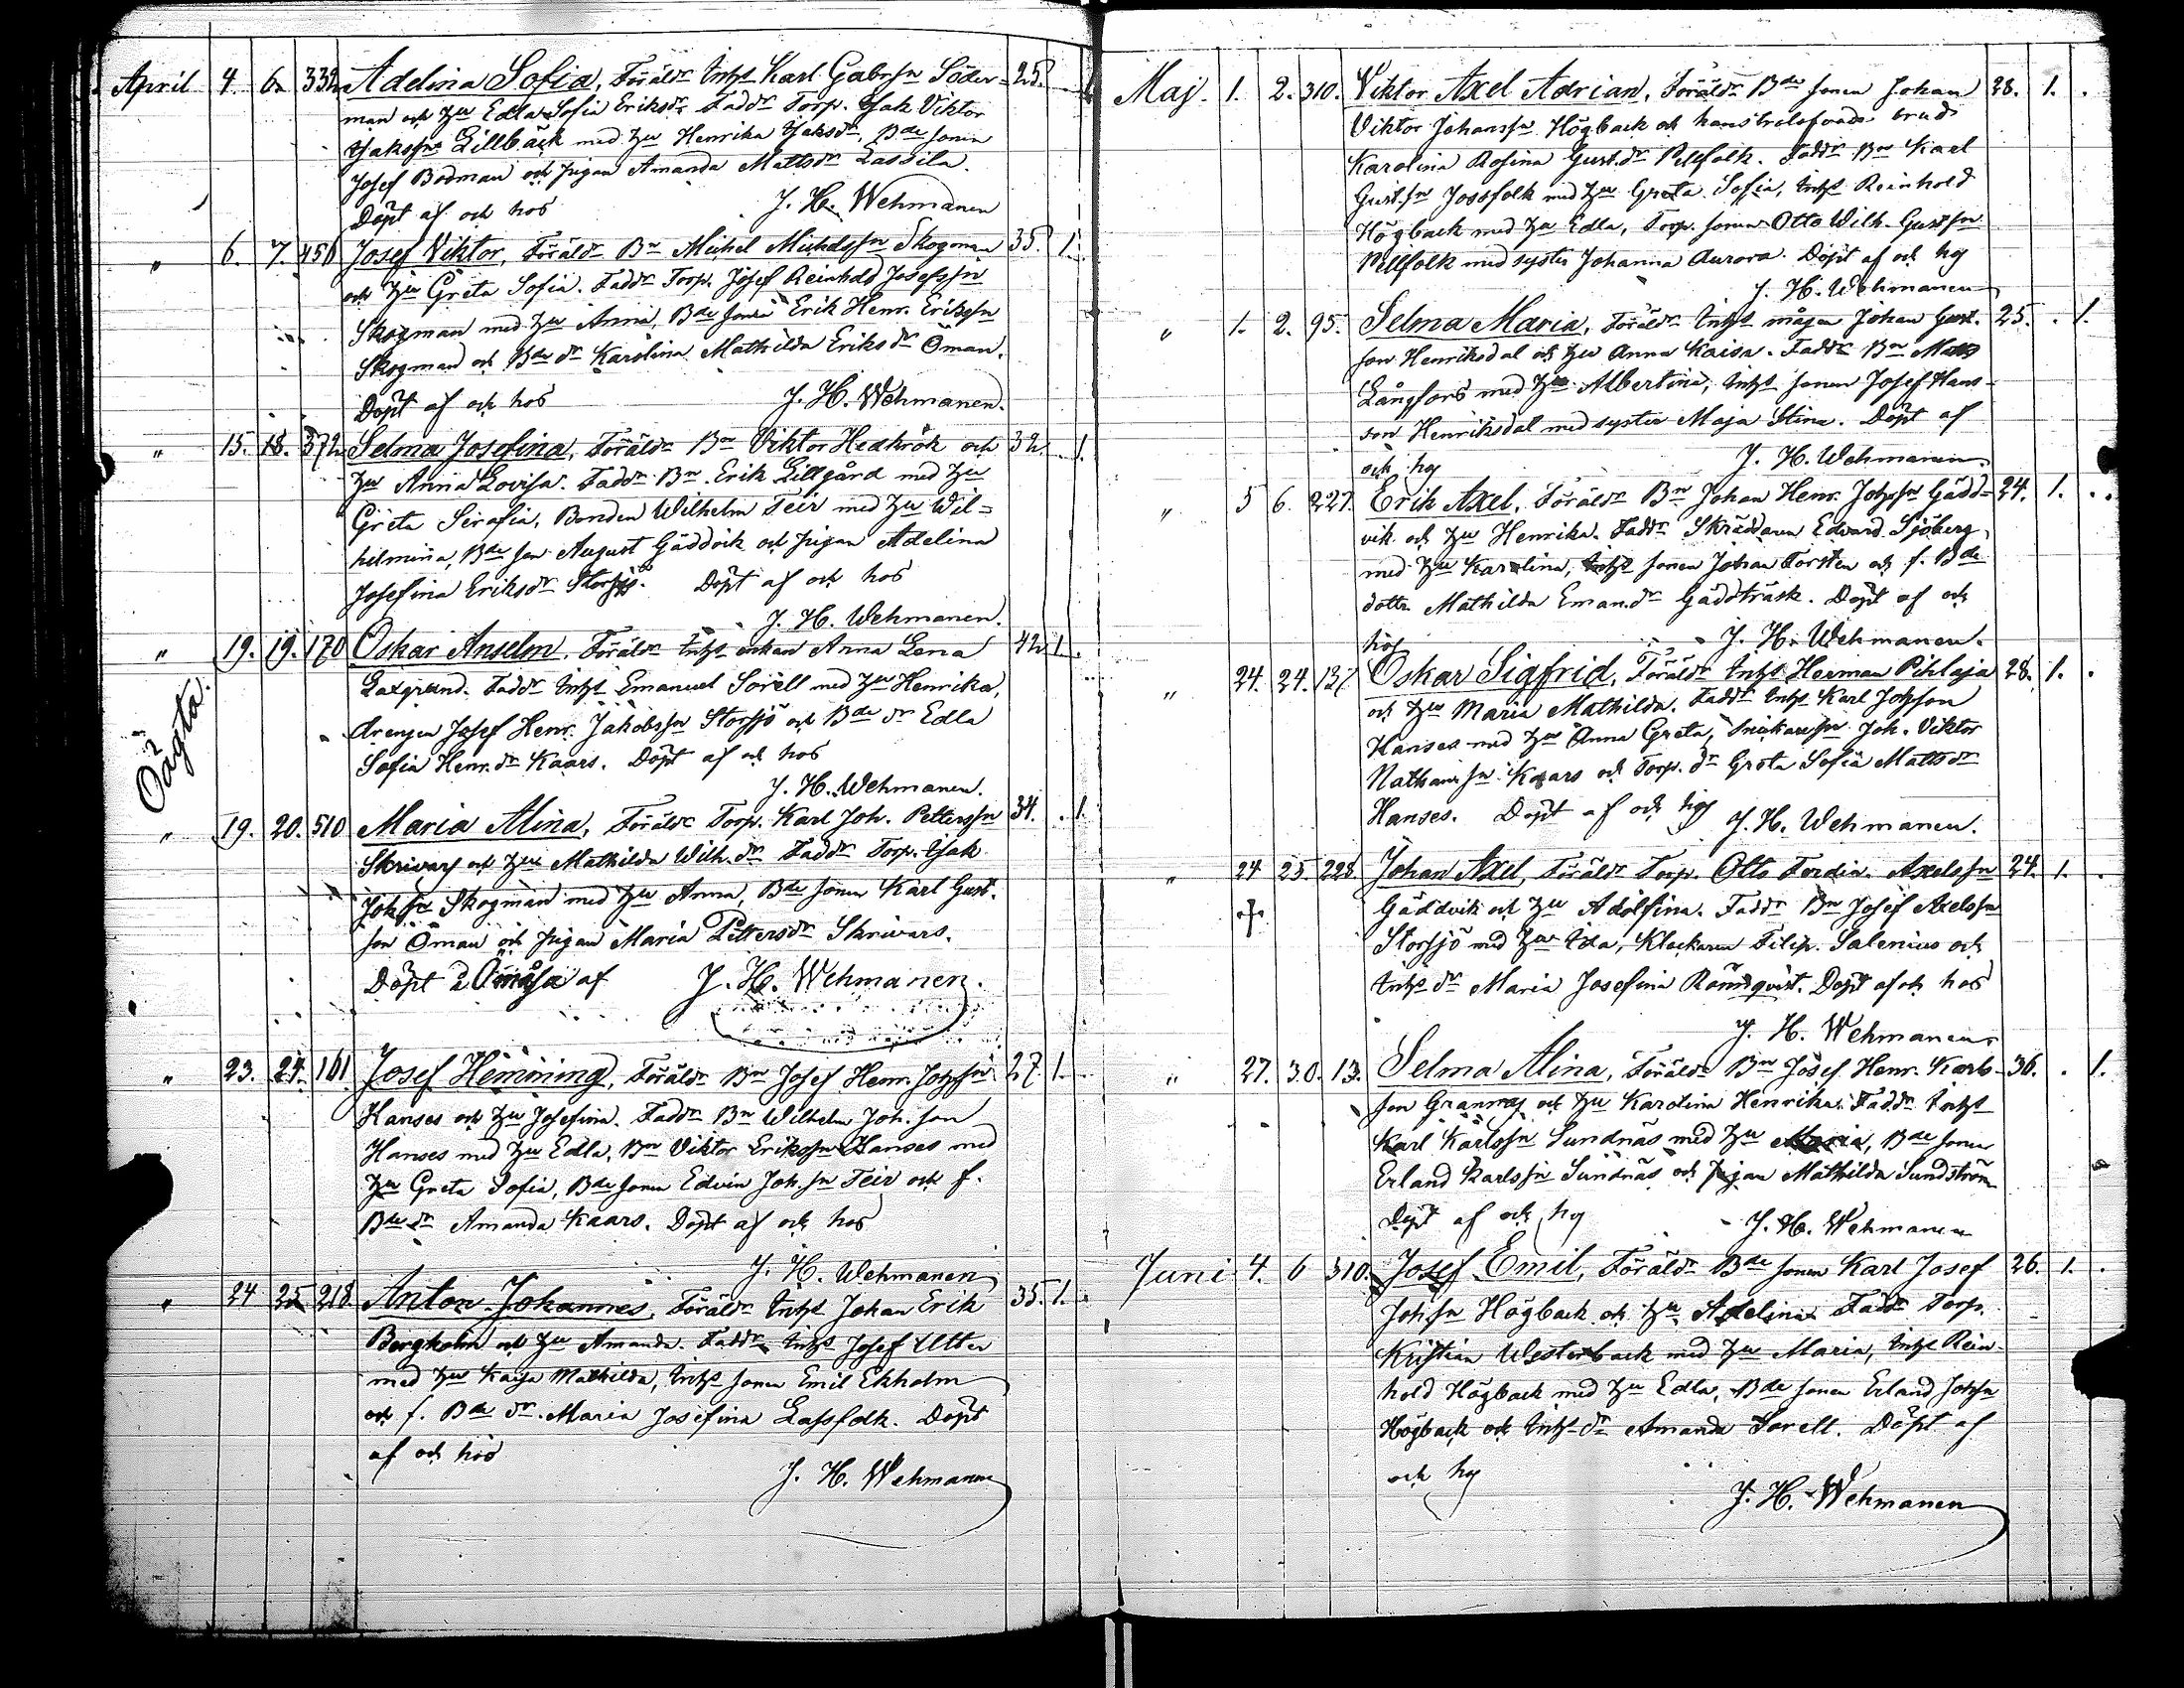 April 4. 6. 332 Adelina Sofia, Föräldr Inhs Karl Gabr.sn Söder- 25. 1
man och hu Edla Sofia Eriksdr Faddr Torp. Isak Viktor
Isakssn Lillbäck med hu Henrika Isaksdr, Bde sonen
Josef Bodman och pigan Amanda Mattsdr Lassila.
Döpt af och hos J. H. Wehmanen
" 6. 7. 456 Josef Viktor, Föräldr Bn Michel Michelssn Skogman 35. 1.
och hu Greta Sofia. Faddr Torp. Josef Reinhold Josefssn
Skogman med hu Anna, Bde sonen Erik Henr. Erikssn
Skogman och Bde dr Karolina Mathilda Eriksdr Öman.
Döpt af och hos J. H. Wehmanen.
" 15. 18. 372 Selma Josefina, Föräldr Bn Viktor Hedkrok och 32. 1.
hu Anna Lovisa. Faddr Bn Erik Lillgård med hu
Greta Serafia, Bonden Wilhelm Teir med hu Wil=
helmina, Bde son August Gäddvik och pigan Adelina
Josefina Eriksdr Storsjö. Döpt af och hos
J. H. Wehmanen.
" 19. 19. 170 Oskar Anselm, Föräldr Inhs enkan Anna Lena 42 1.
Laxgrund. Faddr Inhs Emanuel Sorell med hu Henrika,
drengen Josef Henr. Jakobssn Storsjö och Bde dr Edla
Sofia Henr.dr Kaars. Döpt af och hos
J. H. Wehmanen.
Oägta.
" 19. 20. 510 Maria Alina, Föräldr Torp. Karl Joh. Petterssn 34. . 1.
Skrivars och hu Mathilda Wilh.dr Faddr Torp. Isak
Johssn Skogman med hu Anna, Bde sonen Karl Gust.
son Öman och pigan Maria Pettersdr Skrivars.
Döpt å Ömossa af J. H. Wehmanen.
" 23. 24. 161 Josef Hemming, Föräldr Bn Josef Henr. Johssn 27. 1.
Hanses och hu Josefina. Faddr Bn Wilhelm Joh.son
Hanses med hu Edla, Bn Viktor Erikssn Hanses med
hu Greta Sofia, Bde sonen Edvin Joh.sn Teir och f.
Bde dr Amanda Kaars. Döpt af och hos
J. H. Wehmanen
" 24 25 218 Anton Johannes, Föräldr Inhs Johan Erik 35. 1.
Bergholm och hu Amanda. Faddr Inhs Josef Utter
med hu Kajsa Mathilda, Inhs sonen Emil Ekholm
och f. Bde dr Maria Josefina Lassfolk. Döpt
af och hos
J. H. Wehmanen
Maj. 1. 2. 310. Viktor Axel Adrian, Föräldr Bde sonen Johan 28. 1. .
Viktor Johanssn Högback och hans trolofvade brud
Karolina Rosina Gust.dr Pellfolk. Faddr Bn Karl
Gust.sn Jossfolk med hu Greta Sofia, Inhs Reinhold
Högback med hu Edla, Torp. sonen Otto Wilh. Gustssn
Pellfolk med syster Johanna Aurora. Döpt af och hos
J. H. Wehmanen
" 1. 2. 95. Selma Maria, Föräldr Inhs mågen Johan Gust. 25. . 1.
son Henriksdal och hu Anna Kaisa. Faddr Bn Matts
Långfors med hu Albertina, Inhs sonen Josef Hans-
son Henriksdal med syster Maja Stina. Döpt af
och hos J. H. Wehmanen.
" 5 6. 227. Erik Axel, Föräldr Bn Johan Henr. Johssn Gädd= 24. 1. . .
vik och hu Henrika. Faddr Skräddaren Edvard Sjöberg
med hu Karolina, Inhs sonen Johan Torsten och f. Bde
dottr Mathilda Eman.dr Gäddträsk. Döpt af och
hos J. H. Wehmanen.
" 24. 24. 137 Oskar Sigfrid, Föräldr Inhs Herman Pihlaja 28. 1. .
och hu Maria Mathilda. Faddr Inhs Karl Johsson
Hanses med hu Anna Greta, Snickaresn Joh. Viktor
Nathanssn Kaars och Torp. dr Greta Sofia Mattsdr
Hanses. Döpt af och hos J. H. Wehmanen.
" 24 25. 228. Johan Axel, Föräldr Torp. Otto Ferdin. Axelssn 24. 1. .
+ Gäddvik och hu Adolfina. Faddr Bn Josef Axelssn
Storsjö med hu Ida, Klockaren Filip. Salenius och
Inhs dr Maria Josefina Rönnqvist. Döpt af och hos
J. H. Wehmanen.
" 27. 30. 13. Selma Alina, Föräldr Bn Josef Henr. Karls- 36. . 1.
son Granmas och hu Karolina Henrika. Faddr Inhs
Karl Karlssn Sundnäs med hu Maria, Bde sonen
Erland Karlssn Sundnäs och pigan Mathilda Sundström
Döpt af och hos J. H. Wehmanen
Juni 4. 6 310. Josef Emil, Föräldr Bde sonen Karl Josef 26. 1. .
Johssn Högback och hu Adelina Faddr Torp.
Kristian Westerback med hu Maria, Inhs Rein-
hold Högback med hu Edla, Bde sonen Erland Johssn
Högback och Inhs dr Amanda Sorell. Döpt af
och hos
J. H. Wehmanen